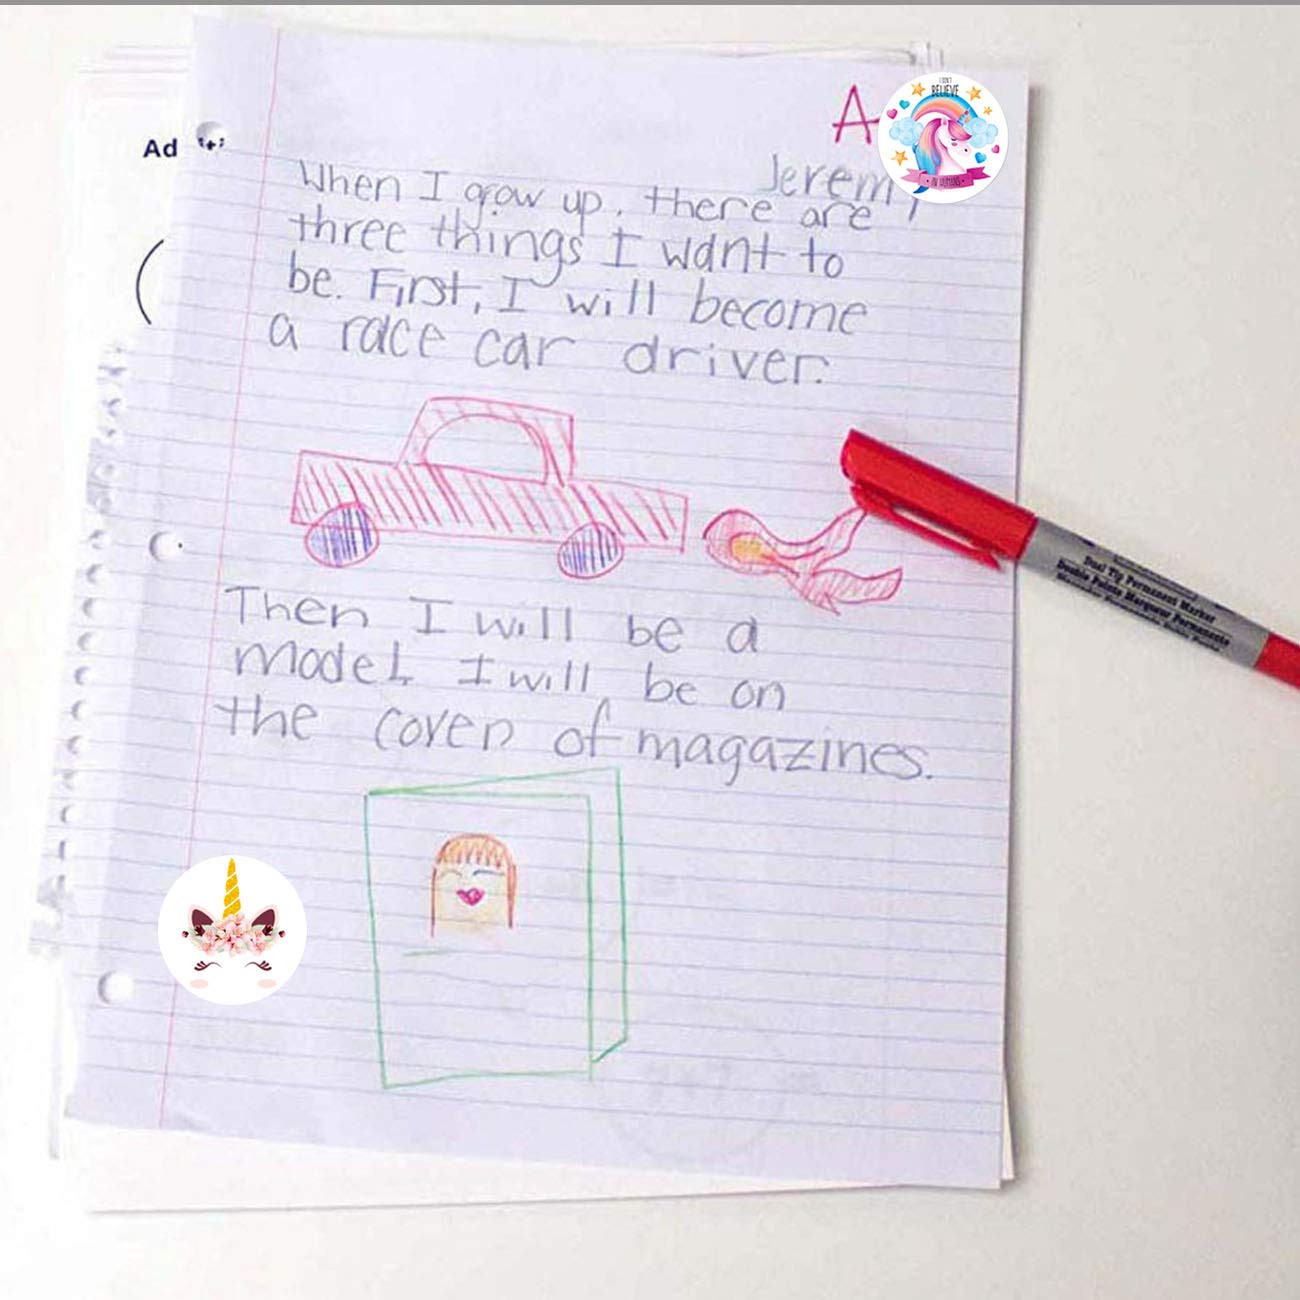 Ad
A
Jeremy
I DON'T
BELIEVE
IN HUMANS
When I grow up, there are
three things I want to
be. First, I will become
a race car driver.
Then I will be a
model. I will be on
the cover of magazines.
Dual Tip Permanent Marker
Double Pointe Marqueur Permanente